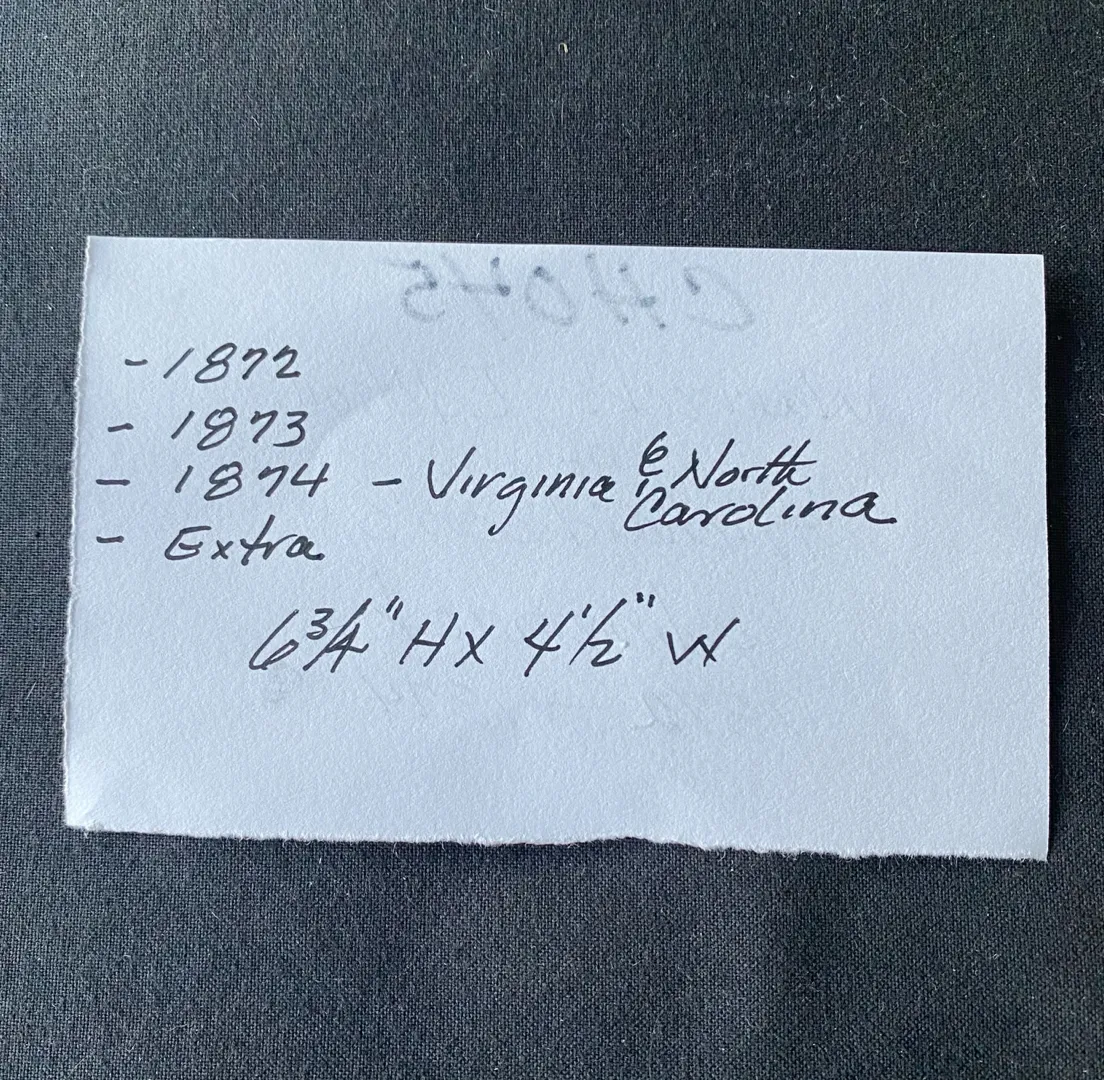 - 1872
- 1873
- 1874 - Virginia & North Carolina
- Extra
6 3/4" H X 4 1/2" W